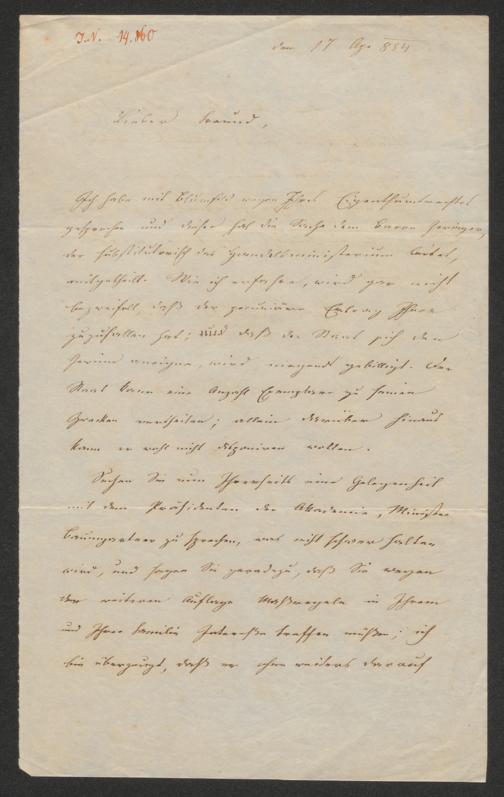 I.N. 14.160
den 17 Ap. 854
Lieber Freund,
Ich habe mit Blumfeld wegen Ihres Eigenthumsrechtes
gesprochen und dieser hat die Sache dem Baron
der substitutorisch das Handelsministerium leitet,
mitgetheilt. Wie ich erfahre, wird gar nicht
bezweifelt, daß der pecuniäre Ertrag Ihnen
zuzufallen hat; und daß der Staat sich den
aneigne, wird nirgends gebilligt. Der
Staat kann eine Anzahl Exemplare zu seinen
Zwecken vertheilen; allein darüber hinaus
kann er wohl nicht disponiren wollen.
Suchen Sie nun Ihrerseits eine Gelegenheit
mit dem Präsidenten der Akademie, Minister
Baumgartner zu sprechen, was nicht schwer halten
wird, und sagen Sie geradezu, daß Sie wegen
der weiteren Auflage Maßregeln in Ihrem
und Ihrer Familie Interesse treffen müßen; ich
bin überzeugt, daß er ohne weiters darauf